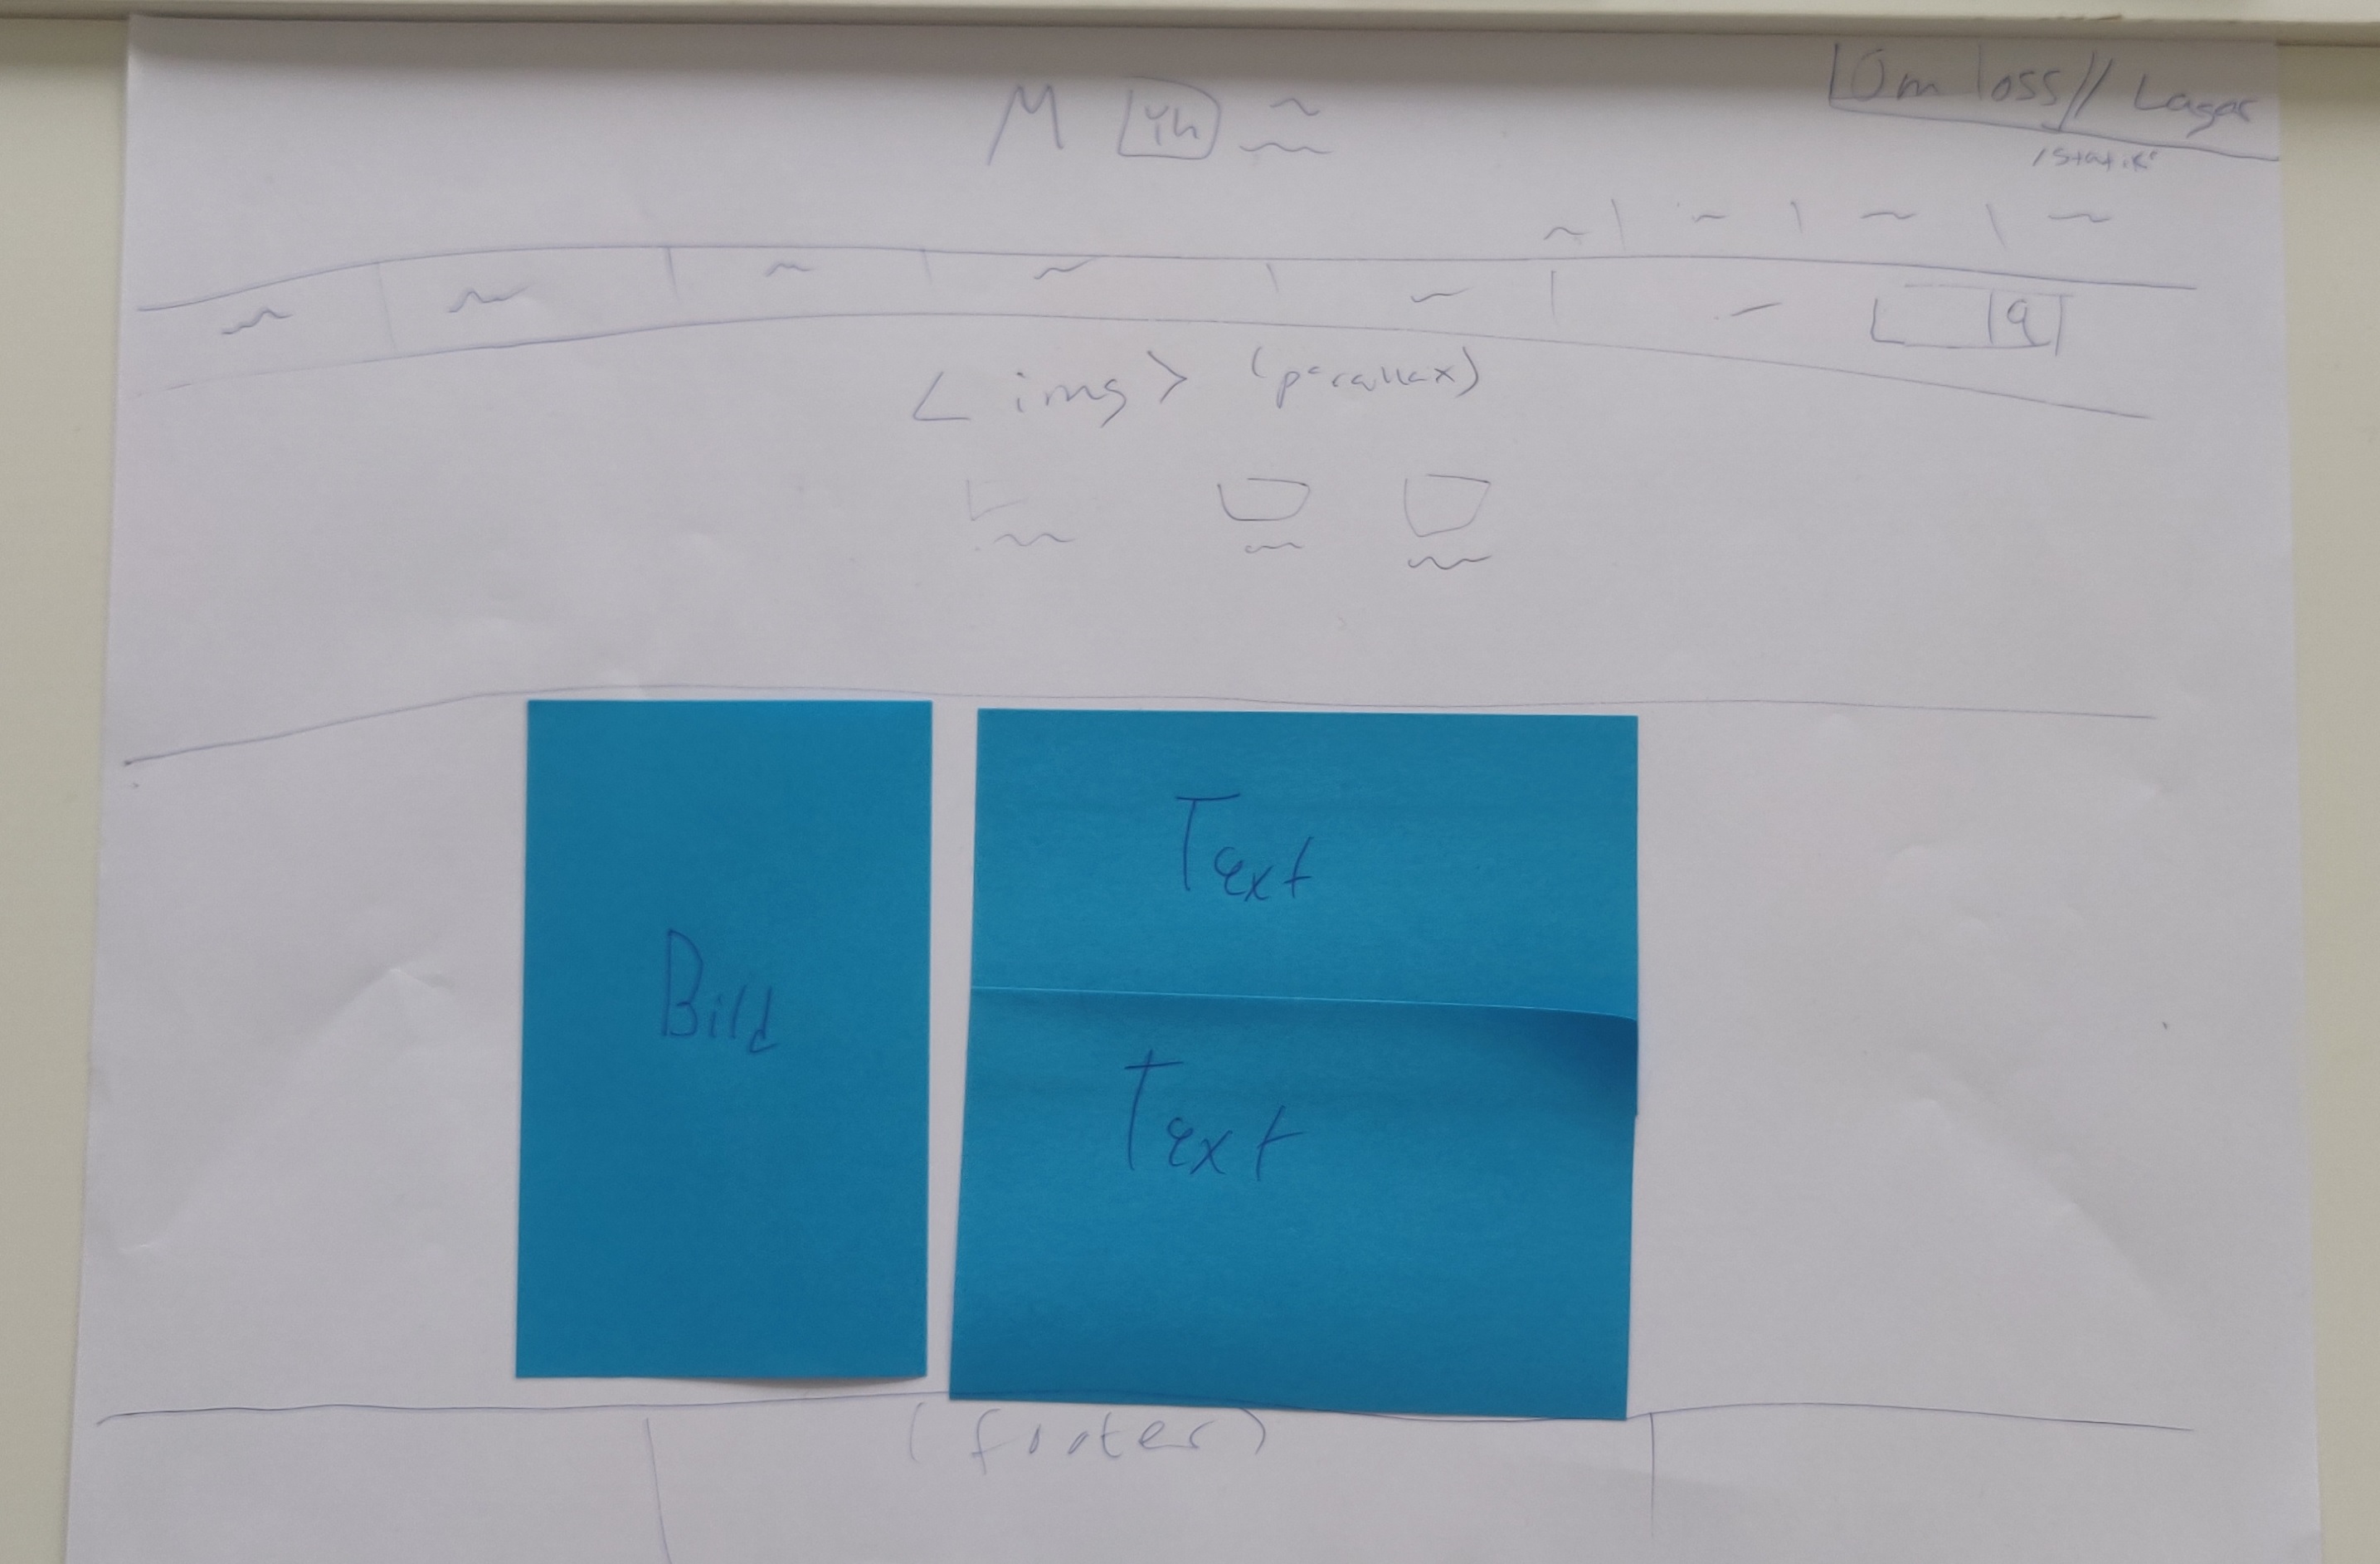 Om loss // Lager
M Yh
/statik
< img > (parallax)
Bild
Text
Text
(footer)